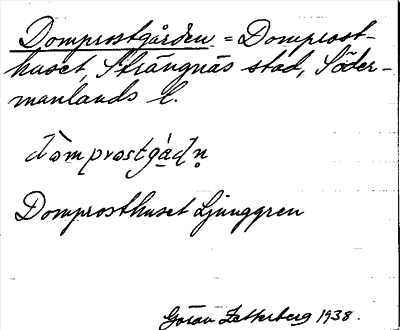 Domprostgården = Domprost-
huset, Strängnäs stad, Söder-
manlands l.
dòmprostgá̱dn̥
Domprosthuset Ljunggren
Göran Zetterberg 1938.